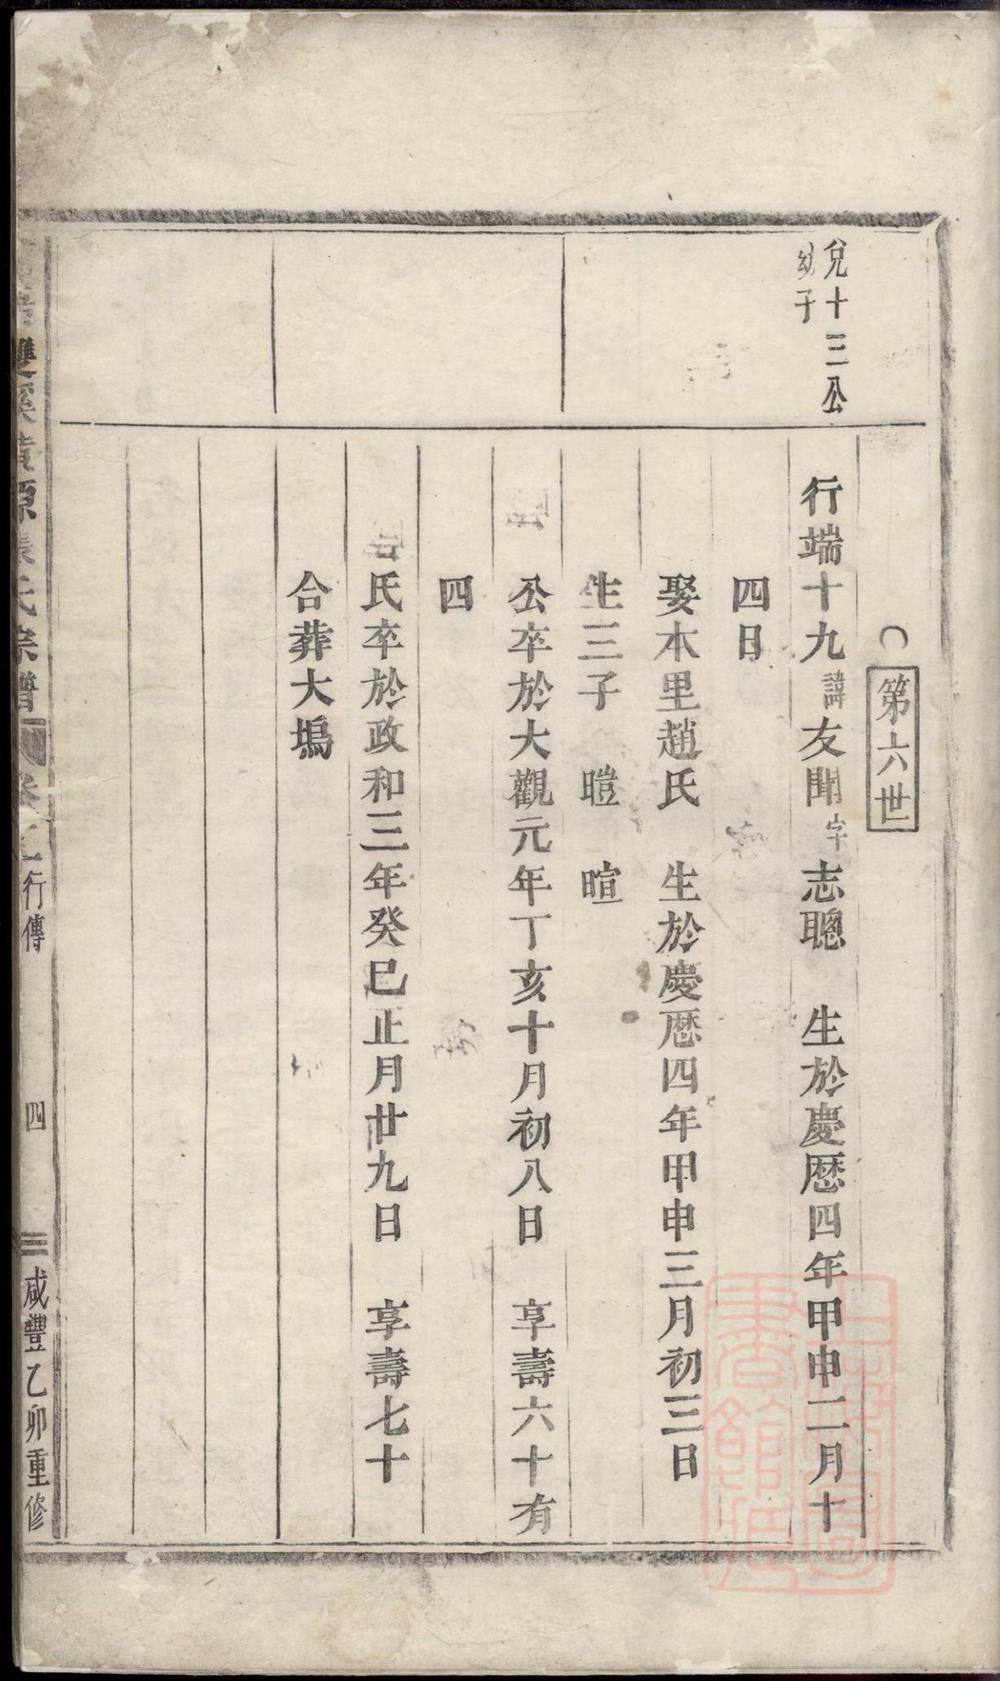 第六世
兌十三公
幼子
行端十九諱友聞字志聰 生於慶厯四年甲申二月十
四日
娶木里趙氏 生於慶厯四年甲申三月初三日
生三子 暟 暄
公卒於大觀元年丁亥十月初八日 享壽六十有
四
氏卒於政和三年癸巳正月廿九日 享壽七十
合葬大塢
雙溪黃源 氏宗譜 卷之 行傳 四 咸豐乙卯重修